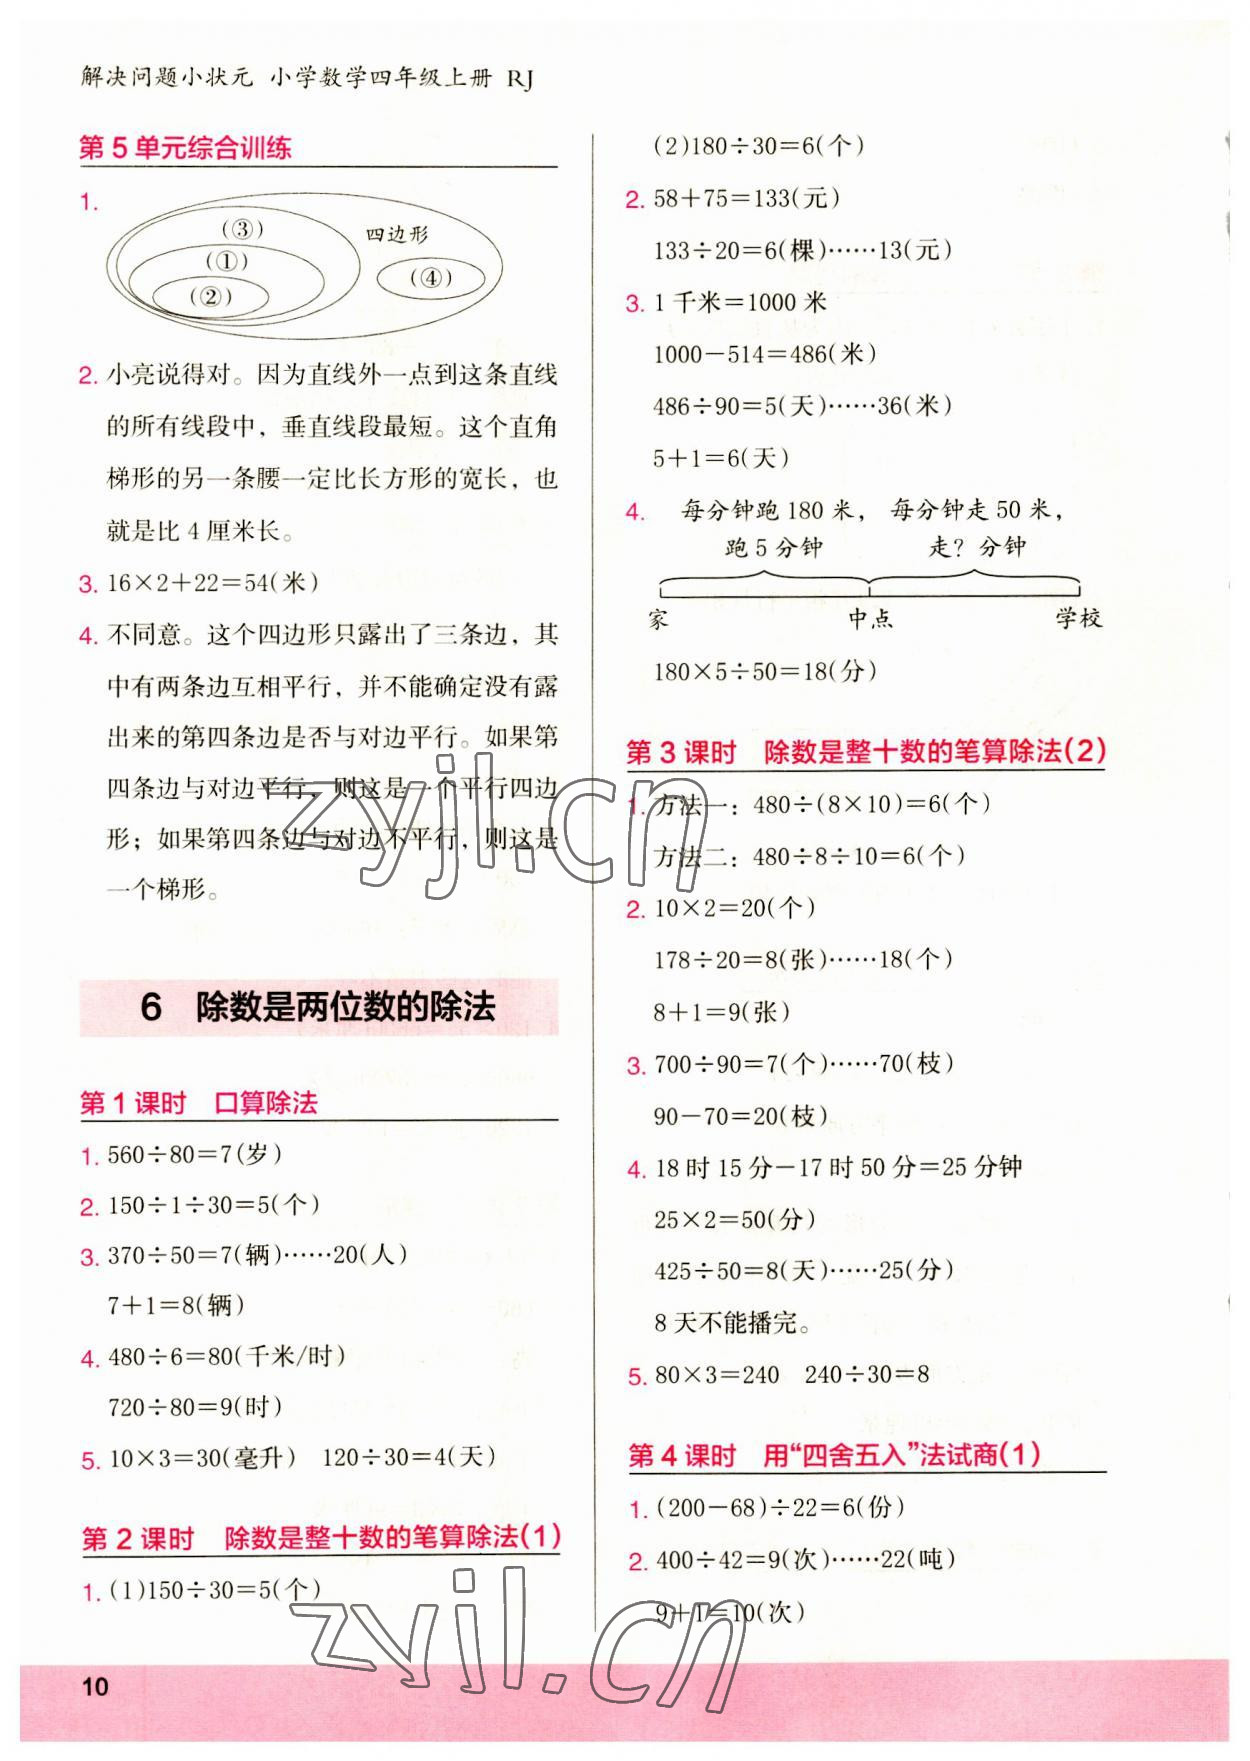 解决问题小状元 小学数学四年级上册 RJ
第 5 单元综合训练
1.
(③)
四边形
(①)
(④)
(②)
2. 小亮说得对。因为直线外一点到这条直线
的所有线段中，垂直线段最短。这个直角
梯形的另一条腰一定比长方形的宽长，也
就是比 4 厘米长。
3. 16×2+22=54(米)
4. 不同意。这个四边形只露出了三条边，其
中有两条边互相平行，并不能确定没有露
出来的第四条边是否与对边平行。如果第
四条边与对边平行，则这是一个平行四边
形；如果第四条边与对边不平行，则这是
一个梯形。
6 除数是两位数的除法
第 1 课时 口算除法
1. 560÷80=7(岁)
2. 150÷1÷30=5(个)
3. 370÷50=7(辆)……20(人)
7+1=8(辆)
4. 480÷6=80(千米/时)
720÷80=9(时)
5. 10×3=30(毫升) 120÷30=4(天)
第 2 课时 除数是整十数的笔算除法(1)
1. (1)150÷30=5(个)
(2)180÷30=6(个)
2. 58+75=133(元)
133÷20=6(棵)……13(元)
3. 1 千米=1000 米
1000-514=486(米)
486÷90=5(天)……36(米)
5+1=6(天)
4. 每分钟跑 180 米， 每分钟走 50 米，
跑 5 分钟 走？分钟
家 中点 学校
180×5÷50=18(分)
第 3 课时 除数是整十数的笔算除法(2)
1. 方法一：480÷(8×10)=6(个)
方法二：480÷8÷10=6(个)
2. 10×2=20(个)
178÷20=8(张)……18(个)
8+1=9(张)
3. 700÷90=7(个)……70(枝)
90-70=20(枝)
4. 18 时 15 分-17 时 50 分=25 分钟
25×2=50(分)
425÷50=8(天)……25(分)
8 天不能播完。
5. 80×3=240 240÷30=8
第 4 课时 用“四舍五入”法试商(1)
1. (200-68)÷22=6(份)
2. 400÷42=9(次)……22(吨)
9+1=10(次)
10
zyjl.cn
zyjl.cn